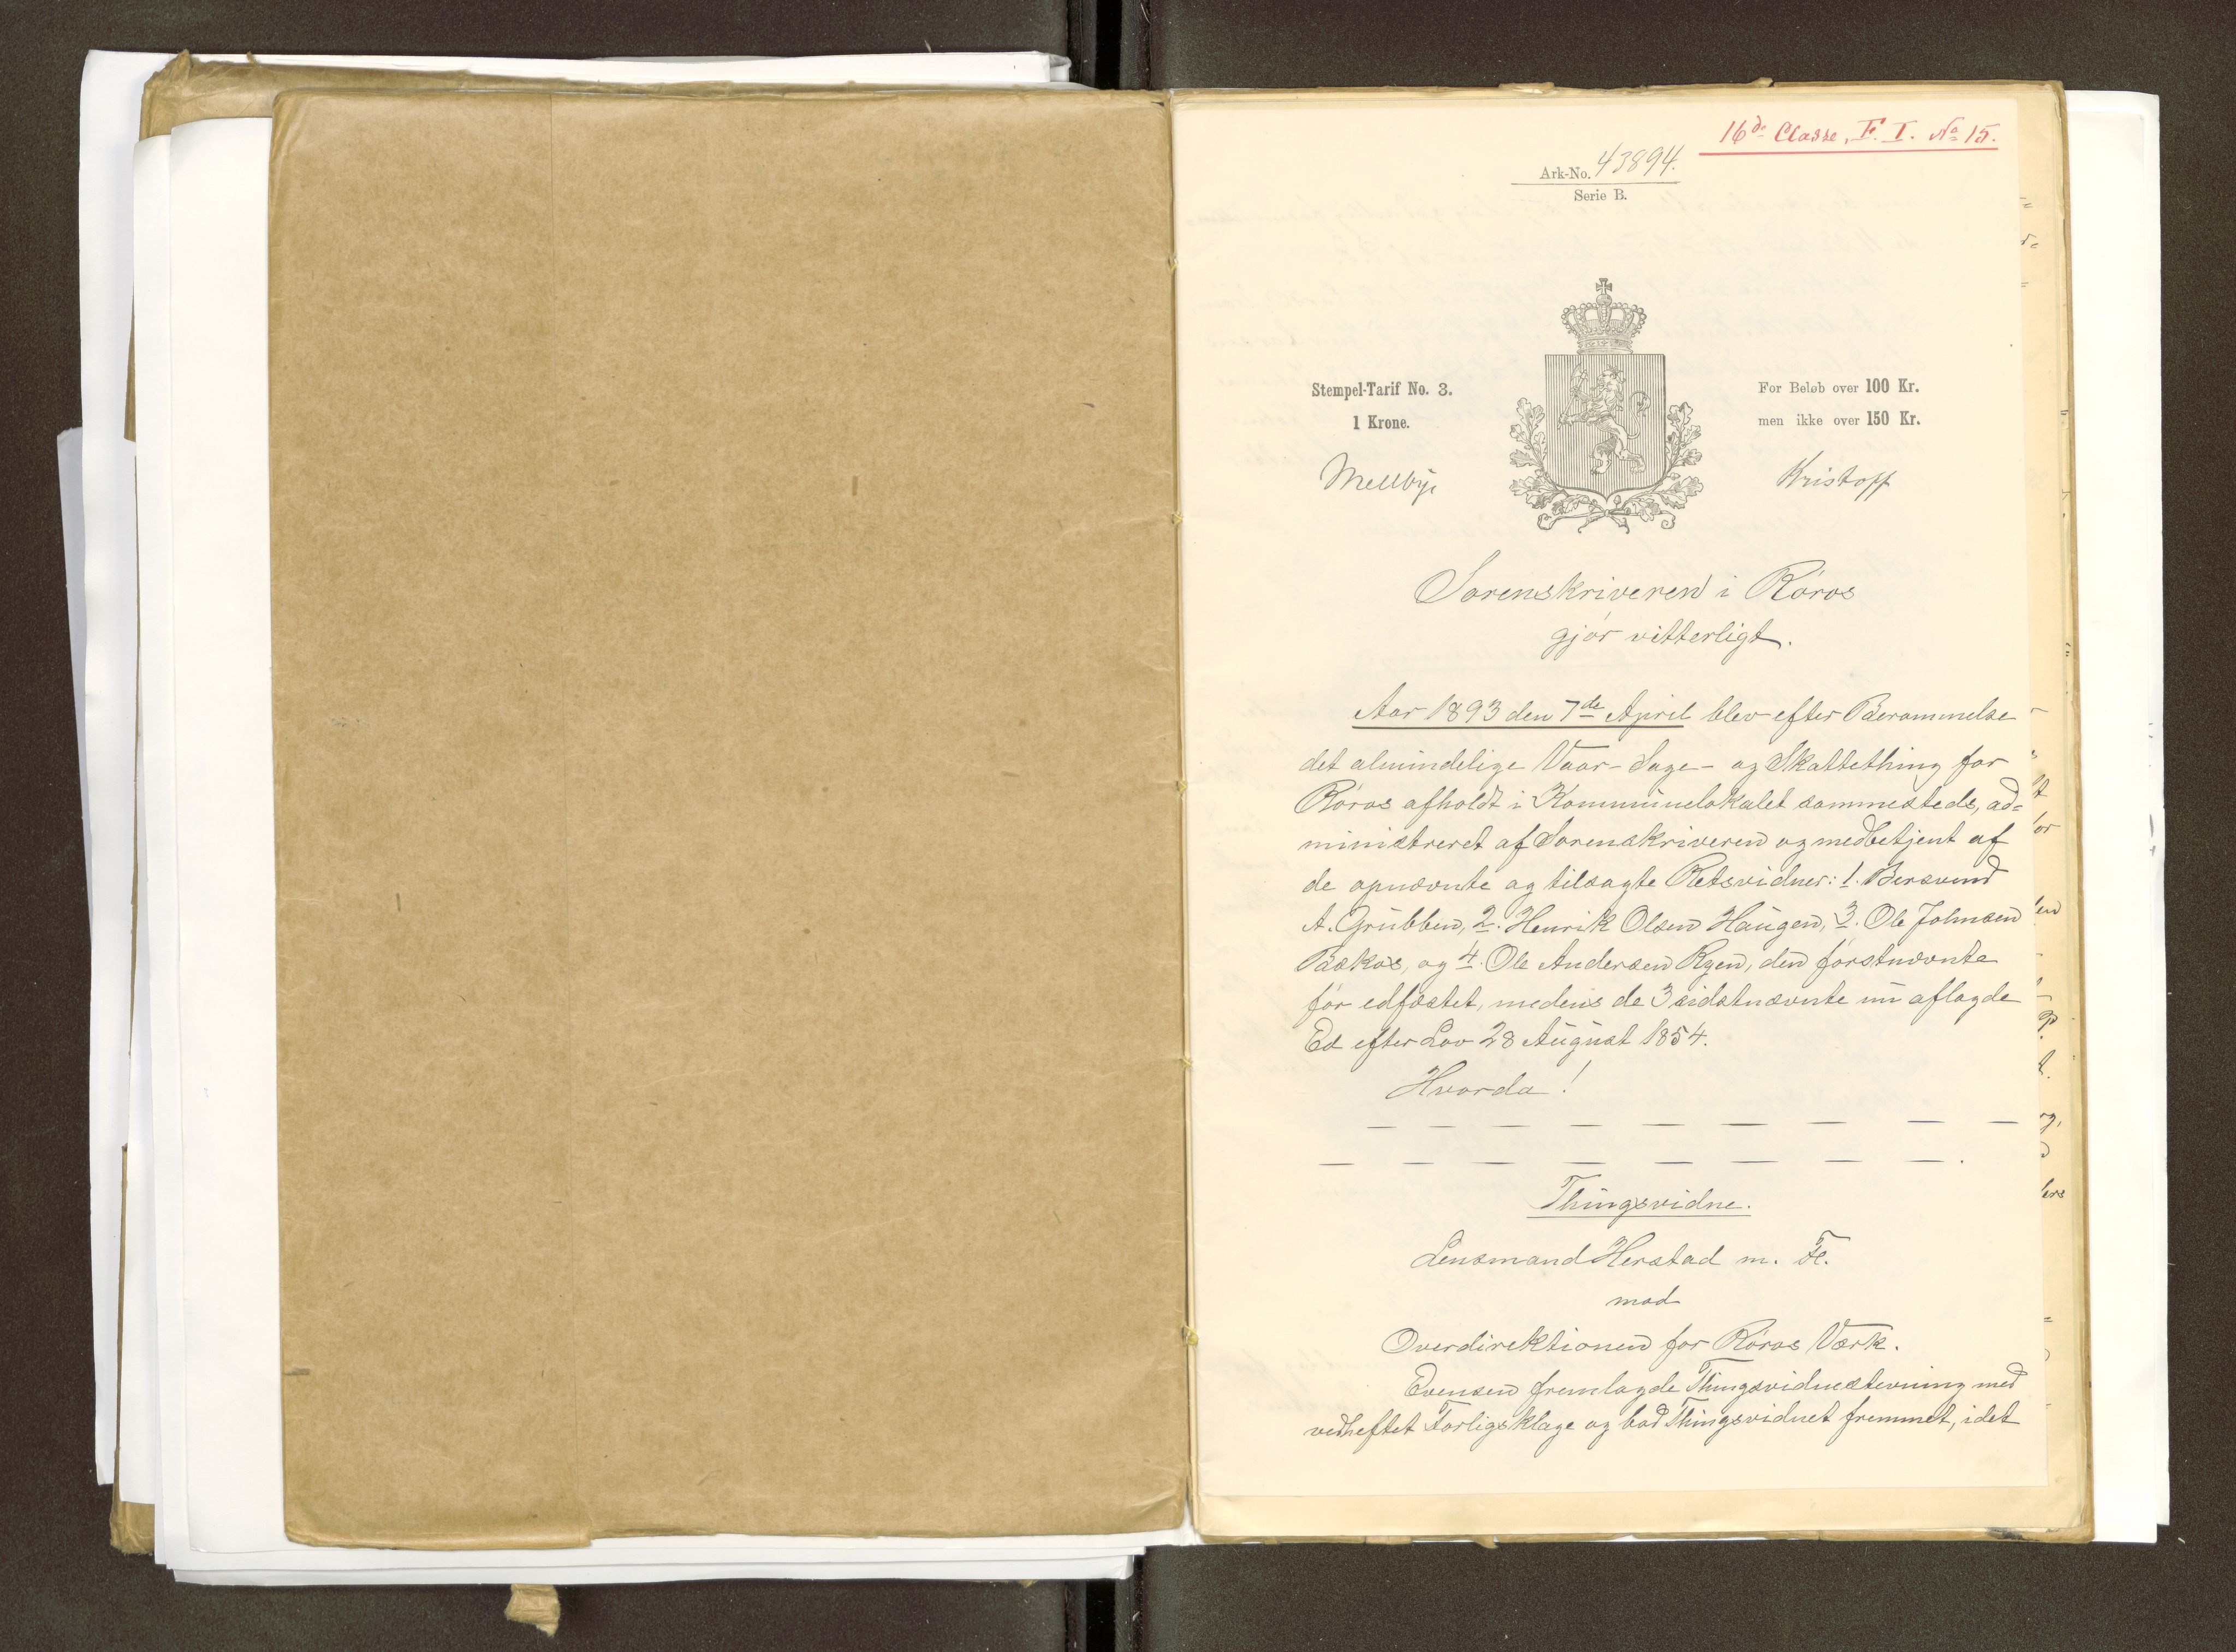 16de Classe, F. I. No 15.
Ark-No. 43894.
Serie B.
Stempel-Tarif No. 3.
1 Krone.
For Beløb over 100 Kr.
men ikke over 150 Kr.
Mellbye
Kristoff
Sorenskriveren i Röros
gjör vitterligt.
Aar 1893 den 7de April blev efter Berammelse
det almindelige Vaar- Sage- og Skattething for
Röros afholdt i Kommunelokalet sammesteds, ad=
ministreret af Sorenskriveren og medbetjent af
de opnævnte og tilsagte Retsvidner: 1. Bersvend
A. Grubben, 2. Henrik Olsen Haugen, 3. Ole Johnsen
og 4. Ole Andersen Ryen, den förstnævnte
för edfæstet, medens de 3 sidstnævnte nu aflagde
Ed efter Lov 28 August 1854.
Hvorda!
— — — — — — — — —
— — — — — — — —.
Thingsvidne.
Lensmand Herstad m. Fl.
mod
Overdirektionen for Röros Værk.
Evensen fremlagde Thingsvidnestevning med
vedheftet Forligsklage og bad Thingsvidnet fremmet, idet